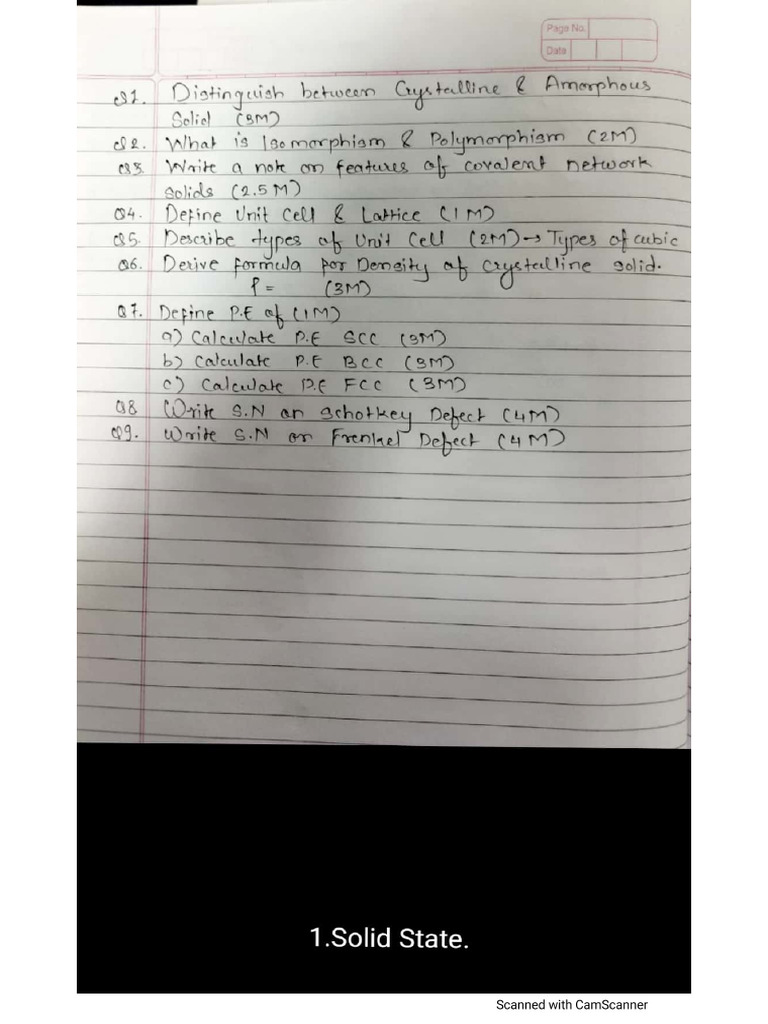 Page No.
Date
Q1. Distinguish between Crystalline & Amorphous
Solid (3M)
Q2. What is Isomorphism & Polymorphism (2M)
Q3. Write a note on features of covalent network
solids (2.5M)
Q4. Define Unit Cell & Lattice (1M)
Q5. Describe types of Unit Cell (2M)→ Types of cubic
Q6. Derive formula for Density of crystalline solid.
ρ = (3M)
Q7. Define P.E of (1M)
a) Calculate P.E SCC (3M)
b) Calculate P.E BCC (3M)
c) Calculate P.E FCC (3M)
Q8 Write S.N on Schotkey Defect (4M)
Q9. Write S.N on Frenkel Defect (4M)
1.Solid State.
Scanned with CamScanner